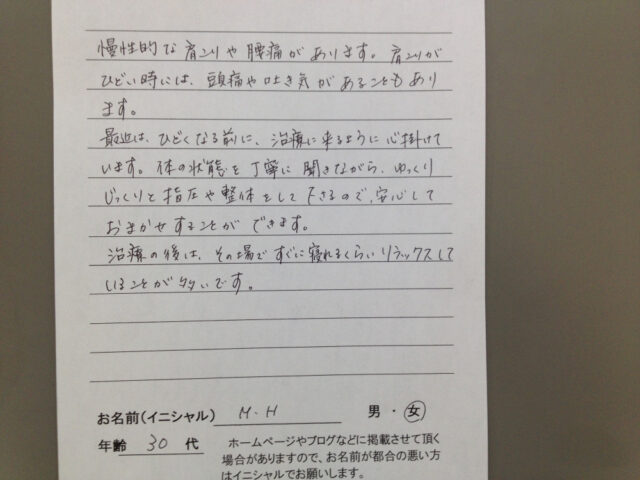 慢性的な肩こりや腰痛があります。肩こりが
ひどい時には、頭痛や吐き気があることもあり
ます。
最近は、ひどくなる前に、治療に来るように心掛けて
います。体の状態を丁寧に聞きながら、ゆっくり
じっくりと指圧や整体をして下さるので、安心して
おまかせすることができます。
治療の後は、その場ですぐに寝れるくらいリラックスして
いることが多いです。
お名前(イニシャル) M・H 男・女
年齢 30 代 ホームページやブログなどに掲載させて頂く
場合がありますので、お名前が都合の悪い方
はイニシャルでお願いします。